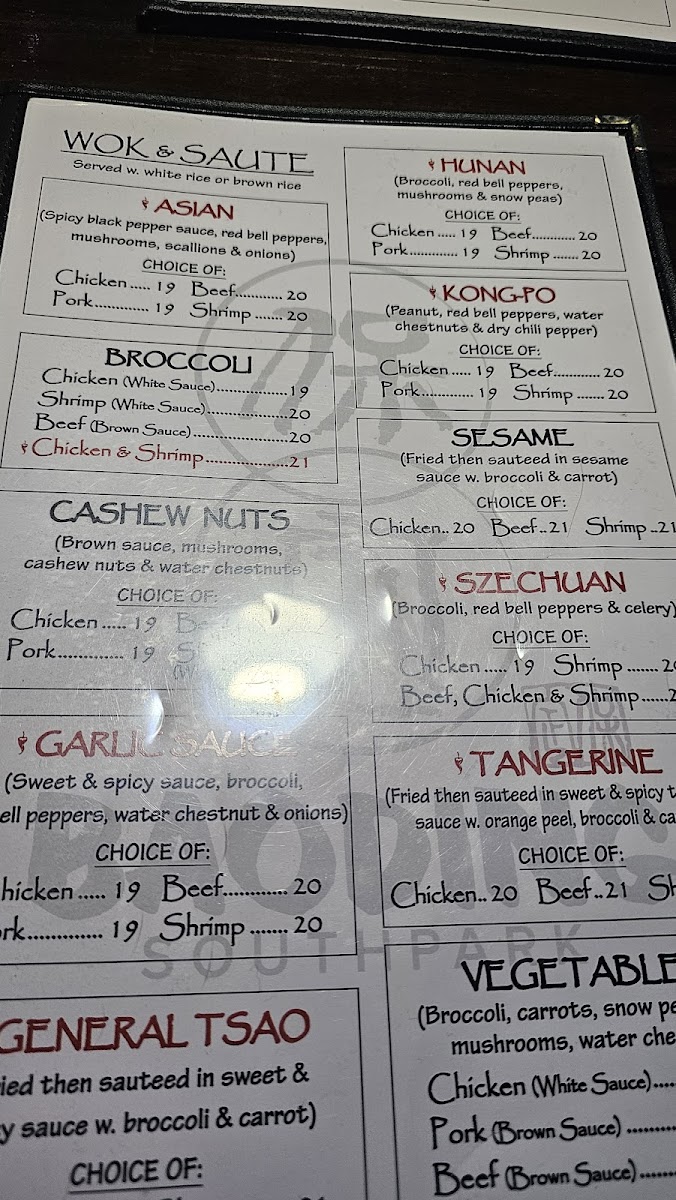 WOK & SAUTE
Served w. white rice or brown rice
ASIAN
(Spicy black pepper sauce, red bell peppers,
mushrooms, scallions & onions)
CHOICE OF:
Chicken ..... 19 Beef............ 20
Pork............. 19 Shrimp ....... 20
BROCCOLI
Chicken (White Sauce).................19
Shrimp (White Sauce)...................20
Beef (Brown Sauce).......................20
Chicken & Shrimp....................21
CASHEW NUTS
(Brown sauce, mushrooms,
cashew nuts & water chestnuts)
CHOICE OF:
Chicken ..... 19
Pork............. 19
GARLIC SAUCE
(Sweet & spicy sauce, broccoli,
ell peppers, water chestnut & onions)
CHOICE OF:
hicken ..... 19 Beef............ 20
rk............. 19 Shrimp ....... 20
GENERAL TSAO
ied then sauteed in sweet &
y sauce w. broccoli & carrot)
CHOICE OF:
HUNAN
(Broccoli, red bell peppers,
mushrooms & snow peas)
CHOICE OF:
Chicken ..... 19 Beef............ 20
Pork............. 19 Shrimp ....... 20
KONG-PO
(Peanut, red bell peppers, water
chestnuts & dry chili pepper)
CHOICE OF:
Chicken ..... 19 Beef............ 20
Pork............. 19 Shrimp ....... 20
SESAME
(Fried then sauteed in sesame
sauce w. broccoli & carrot)
CHOICE OF:
Chicken.. 20 Beef..21 Shrimp ..21
SZECHUAN
(Broccoli, red bell peppers & celery)
CHOICE OF:
Chicken ..... 19 Shrimp .......
Beef, Chicken & Shrimp......
TANGERINE
(Fried then sauteed in sweet & spicy t
sauce w. orange peel, broccoli & ca
CHOICE OF:
Chicken.. 20 Beef..21 Sh
VEGETABLE
(Broccoli, carrots, snow pe
mushrooms, water che
Chicken (White Sauce)....
Pork (Brown Sauce) .........
Beef (Brown Sauce)......
BAODING
SOUTHPARK